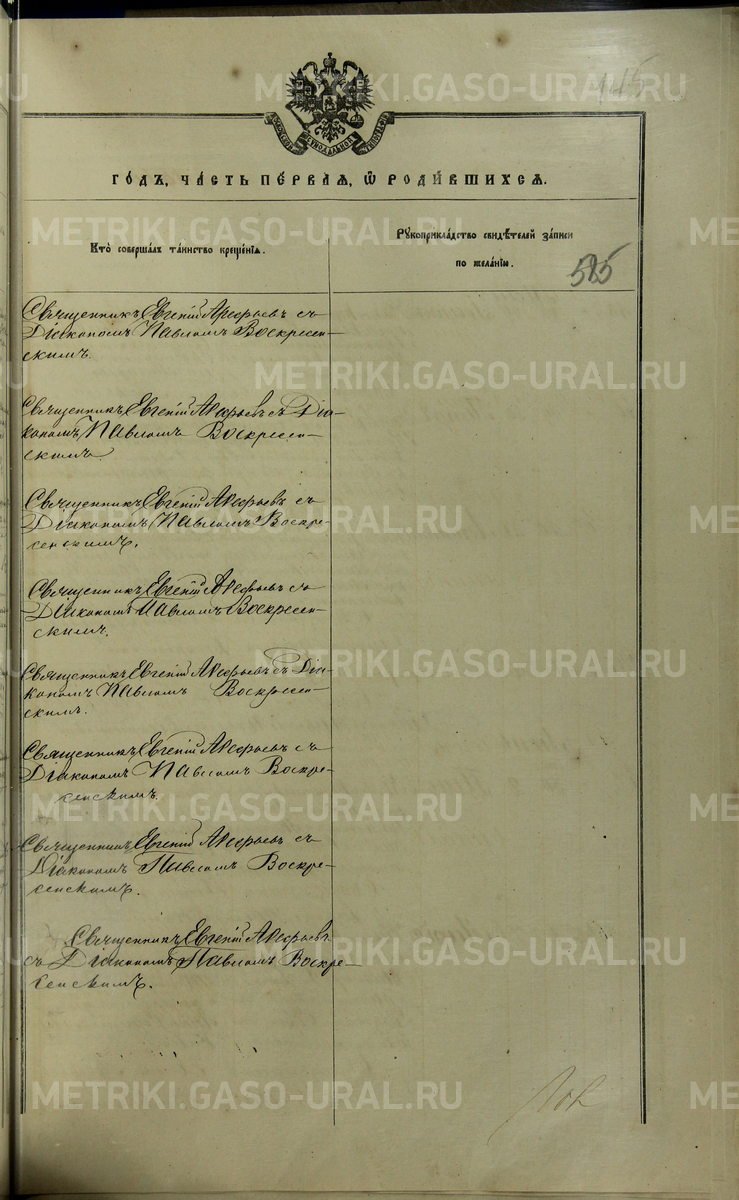 METRIKI.GASO-URAL.RU
МОСКОВСКОЙ СѴНОДАЛЬНОЙ ТИПОГРАФІИ
го́дъ, ча́сть пе́рваѧ, ѡ҆ роди́вшихсѧ.
Кто̀ соверша́лъ та́инство креще́нїѧ.
Рꙋкоприкла́дство свидѣ́телей за́писи
по жела́нїю.
585
Священникъ Евгеній Арефьевъ съ
Діакономъ Павломъ Воскресен-
скимъ.
Священникъ Евгеній Арефьевъ съ Діа-
кономъ Павломъ Воскресен-
скимъ.
Священникъ Евгеній Арефьевъ съ
Діакономъ Павломъ Воскре-
сенскимъ.
Священникъ Евгеній Арефьевъ съ
Діакономъ Павломъ Воскресен-
скимъ.
Священникъ Евгеній Арефьевъ съ Діа-
кономъ Павломъ Воскресен-
скимъ.
Священникъ Евгеній Арефьевъ съ
Діакономъ Павломъ Воскре-
сенскимъ.
Священникъ Евгеній Арефьевъ съ
Діакономъ Павломъ Воскре-
сенскимъ.
Священникъ Евгеній Арефьевъ
съ Діакономъ Павломъ Воскре-
сенскимъ.